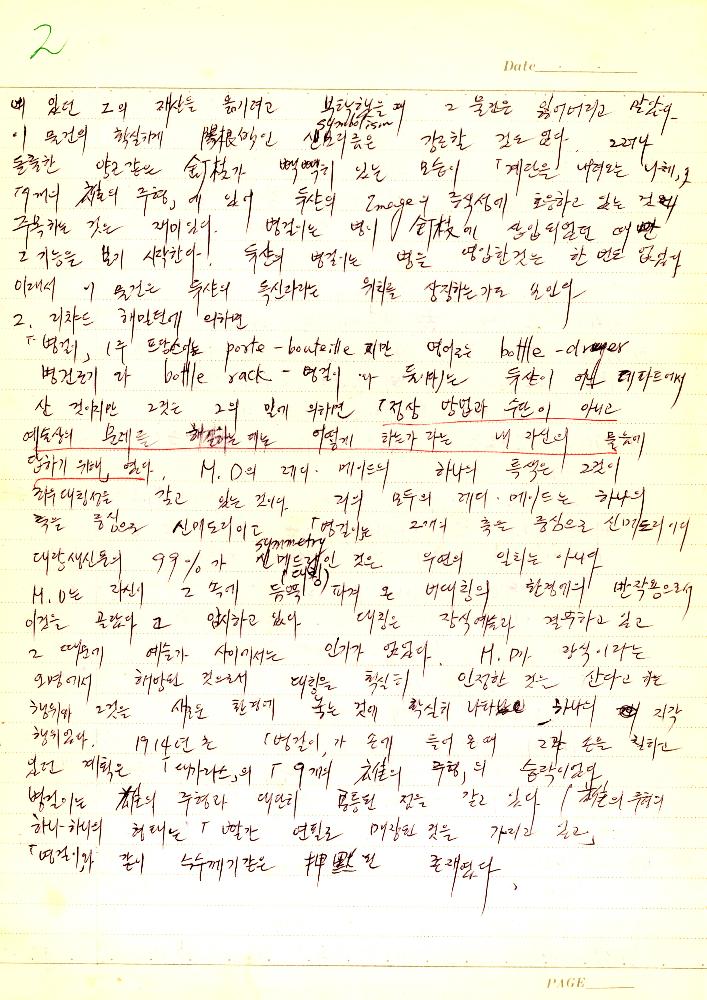 2
Date
에 있던 그의 재산을 옮기려고 부탁했을때 그 물건은 잃어버리고 말았다.
symbolism
이 물건의 확실하게 陽根的인 심보리즘은 강조할 것도 없다. 그러나
돌출한 약고같은 釘枝가 빽빽히 있는 모습이 「계단을 내려오는 나체,」
「9개의 雄의 주형,」에 있어 듀샹의 Image의 주식성에 호응하고 있는 것에
주목하는 것은 재미있다. 병걸이는 병이 釘枝에 삽입되었던 때만
그 기능을 보기 시작한다. 듀샹의 병걸이는 병을 영입한것은 한 번도 없었다
이래서 이 물건은 듀샹의 독신자라는 위치를 상징하는가도 보인다
2. 리차드 해밀턴에 의하면
「병걸이」 (주 프랑스어는 porte-bouteille 지만 영어로는 bottle-dryer
병건조기 다 bottle rack - 병걸이 나 는 듀샹이 데파트에서
산 것이지만 그것은 그의 말에 의하면 「정상 방법과 수단이 아니고
예술상의 문제를 해결하는데는 어떻게 하는가 라는 내 자신의 물음에
답하기 위해」 였다. M.D의 레디·메이드의 하나의 특색은 그것이
좌우대칭성을 갖고 있는 것이다. 거의 모두의 레디·메이드는 하나의
축을 중심으로 신메도리이고 「병걸이」는 2개의 축을 중심으로 신메도리이다
symmetry
대량생산품의 99%가 신메드레인 것은 우연의 일치는 아니다
(대칭)
M.D는 자신이 그 속에 등 파져 온 비대칭의 환경에의 반작용으로서
이것을 골랐다고 암시하고 있다. 대칭은 장식예술과 결부하고 있고
그 때문에 예술가 사이에서는 인기가 없었다. M.D가 장식이라는
오명에서 해방된 것으로서 대칭을 확실히 인정한 것은 산다고 하는
행위와 그것을 새로운 환경에 놓는 것에 확실히 나타 하나의 지각
행위있다. 1914년 초 「병걸이」가 손에 들어 온 때 그가 손을 칠하고
있던 계획은 「대가라스」의 「9개의 雄의 주형」의 승락이었다
병걸이는 雄의 주형과 대단히 공통된 점을 갖고 있다 (雄의 주형의
하나-하나의 형태는 「빨간 연필로 매장된 것을 가리고 있고」
「병걸이」와 같이 수수께끼같은 押黙된 존재였다.
PAGE